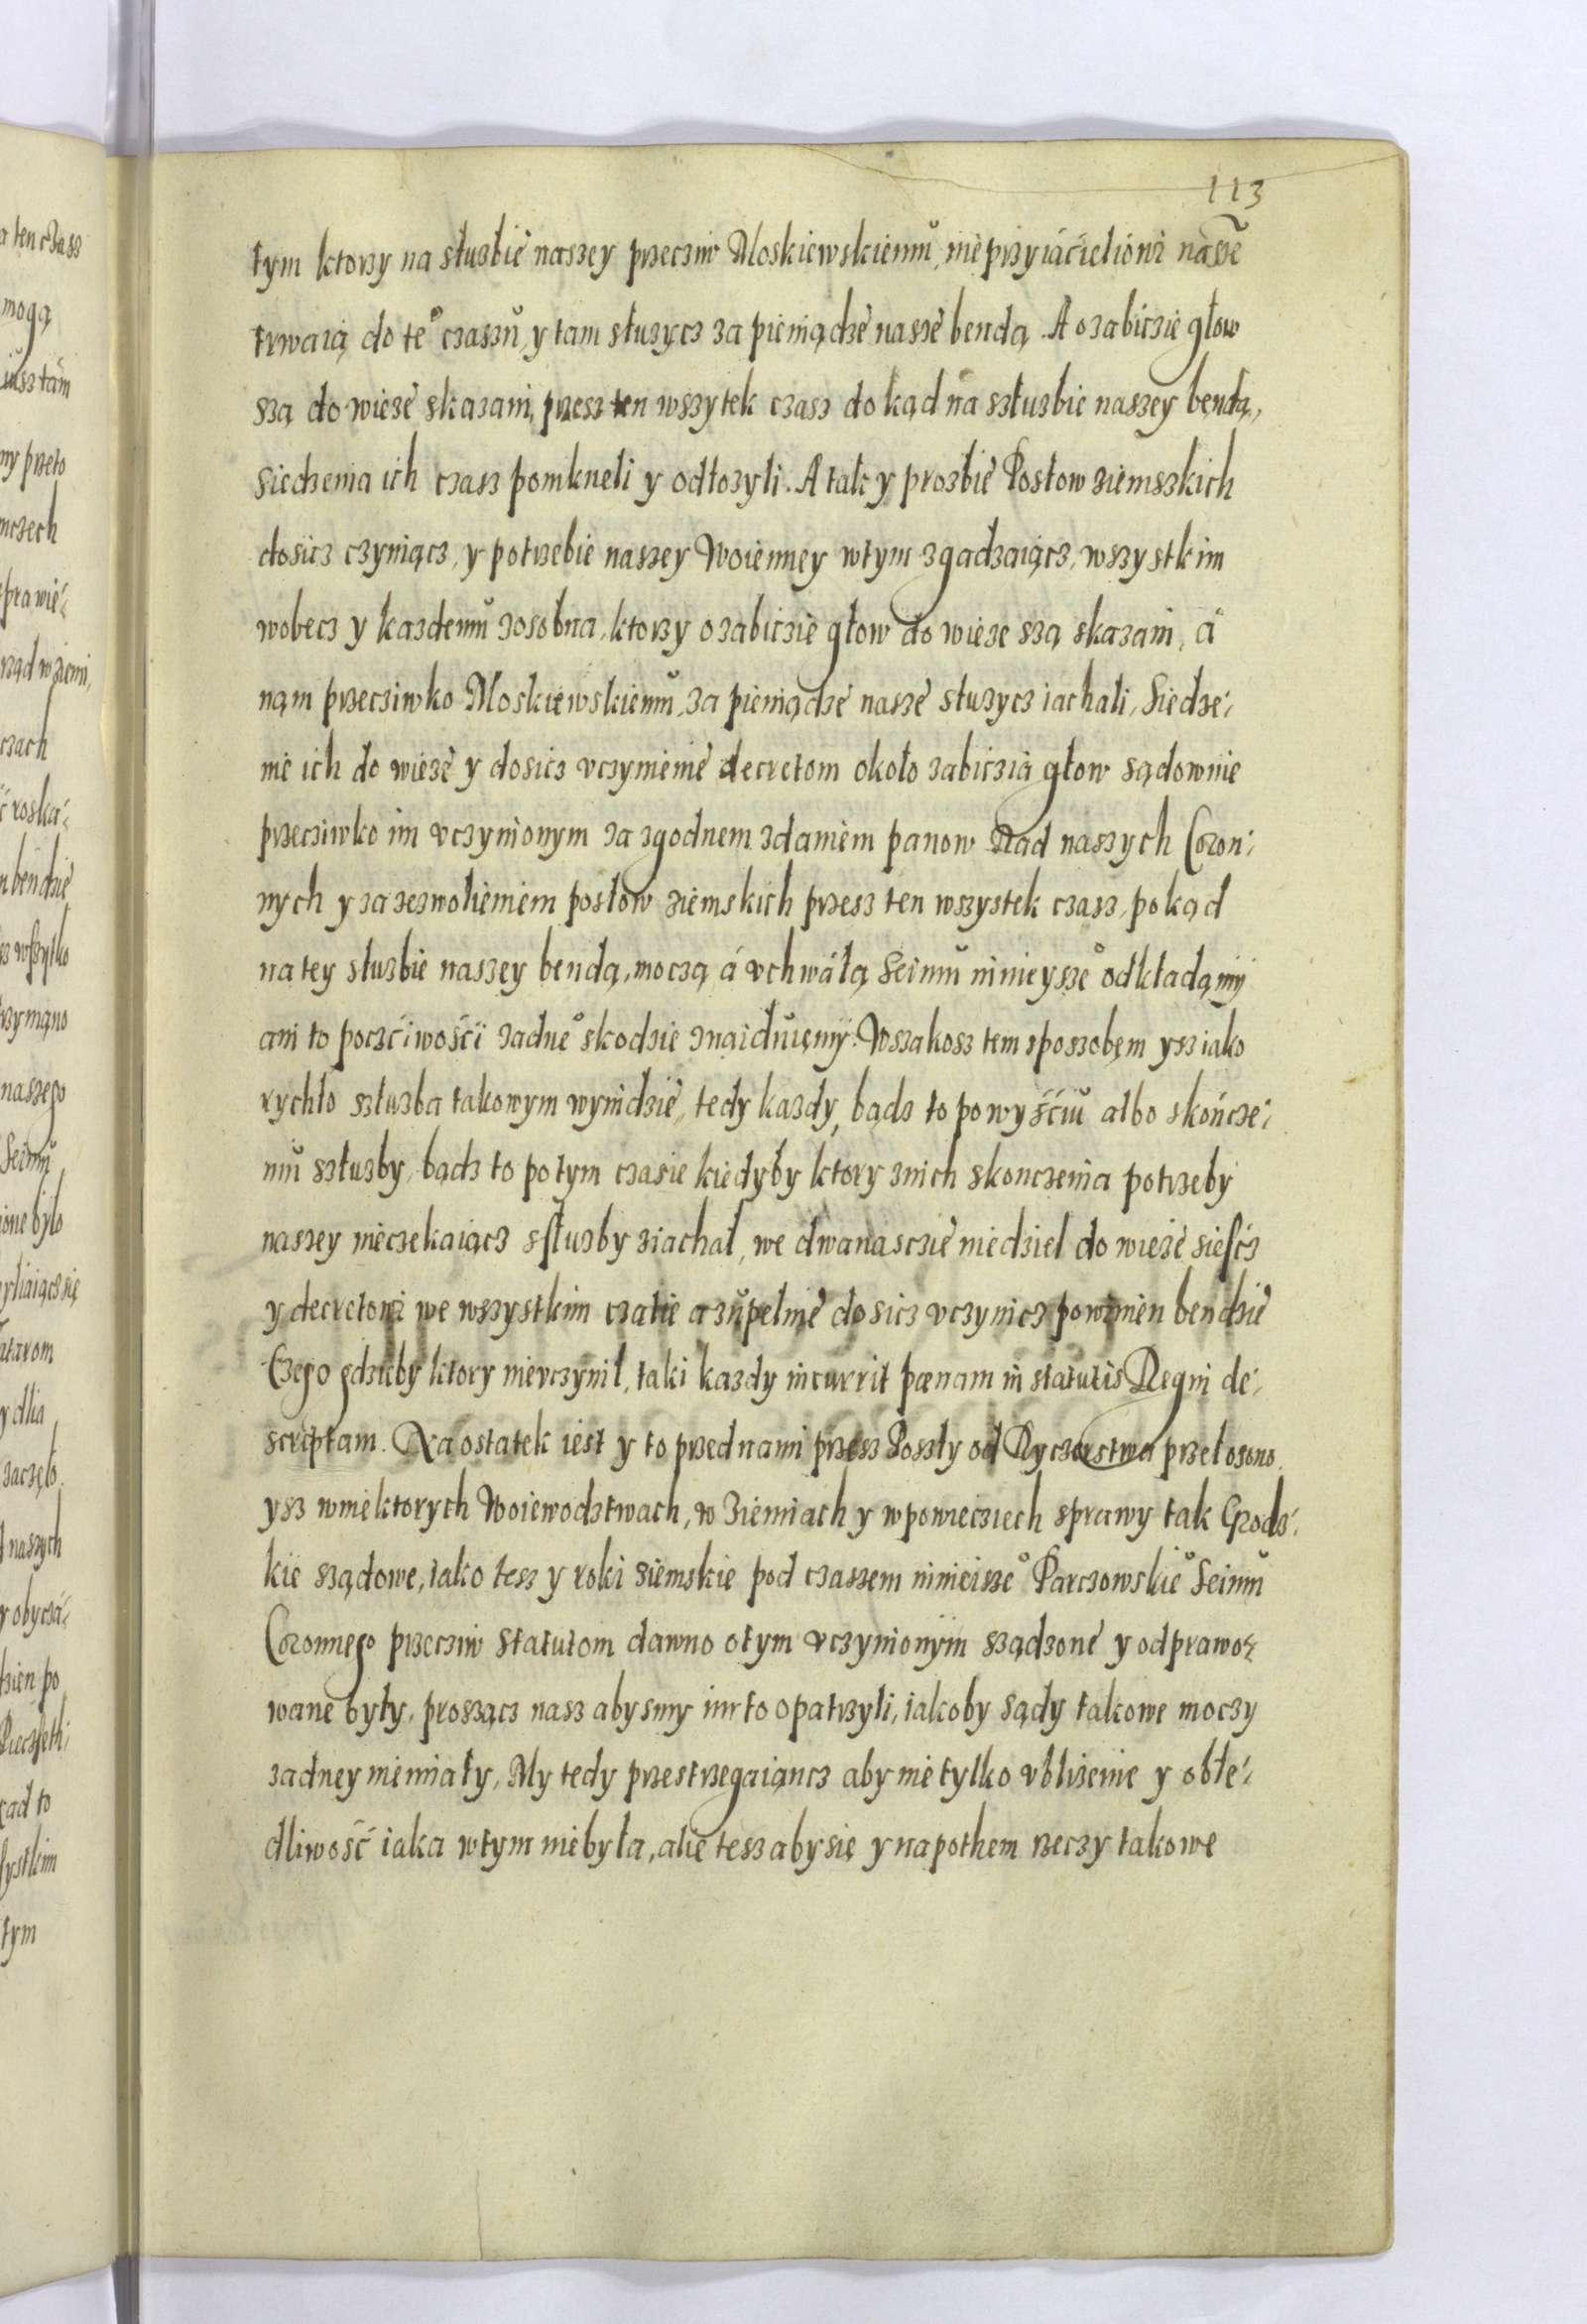 113
tym ktorzy na słuzbie naszey przecziw Moskiewskiemu, nieprzyiacielowi nasze
trwaią do te° czaszu, y tam słuzycz za pieniądze nasze bendą. A o zabiczie głow
szą do wieze skazani, przesz ten wszytek czasz dokąd na szłuzbie naszey bendą,
Siedzenia ich czasz pomkneli y odłozyli. A tak y prozbie Posłow ziemszkich
dosicz czyniącz, y potrzebie naszey Woienney wtym zgadzaiącz, wszystkim
wobecz y kazdemu zosobna, ktorzy o zabiczie głow do wieze szą skazani, a
nąm przecziwko Moskiewskiemu, za pieniądze nasze słuzycz iachali, Siedze-
nie ich do wieze y dosicz vczynienie decretom około zabiczia głow sądownie
przecziwko im vczynionym za zgodnem zdaniem panow Rad naszych Coron-
nych y za zezwolieniem posłow ziemskich przesz ten wszystek czasz, pokąd
na tey słuzbie naszey bendą, moczą a vchwałą Seimu ninieysze° odkładąmy
ani to poczciwości zadne° skodzie znaiduięmy. Wszakosz tem sposzobęm ysz iako
rychło szłuzba takowym wynidzie, tedy kazdy, bądz to po wyściu albo skończe-
niu szłuzby, bądz to potym czasie kiedyby ktory znich skonczenia potrzeby
naszey nieczekaiącz sſłuzby ziachał, we dwanasczie niedziel do wieże sieſcz
y decretowi we wszystkim czalie a zupelnie dosicz vczynicz powinien bendzie
Czego gdzieby ktory nievczynił, taki kazdy incurrit pœnam in statutis Regni de-
scriptam. Na ostatek iest y to przed nami przesz Poszły od Ryczerstwa przełozono
ysz wniektorych Woiewodztwach, w Ziemiach y wpowiecziech sprawy tak Grodz-
kie sządowe, iako tesz y roki ziemskie pod czaszem ninieisze° Parczowskie° Seimu
Coronnego przecziw Statutom dawno otym vczynionym sządzone y odprawo-
wane były, proszącz nasz abysmy im to opatrzyli, iakoby sądy takowe moczy
zadney niemiały, My tedy przestrzegaiąncz aby nie tylko vblizenie y obłe-
dliwość iaka wtym niebyła, alie tesz aby się y napothem rzeczy takowe